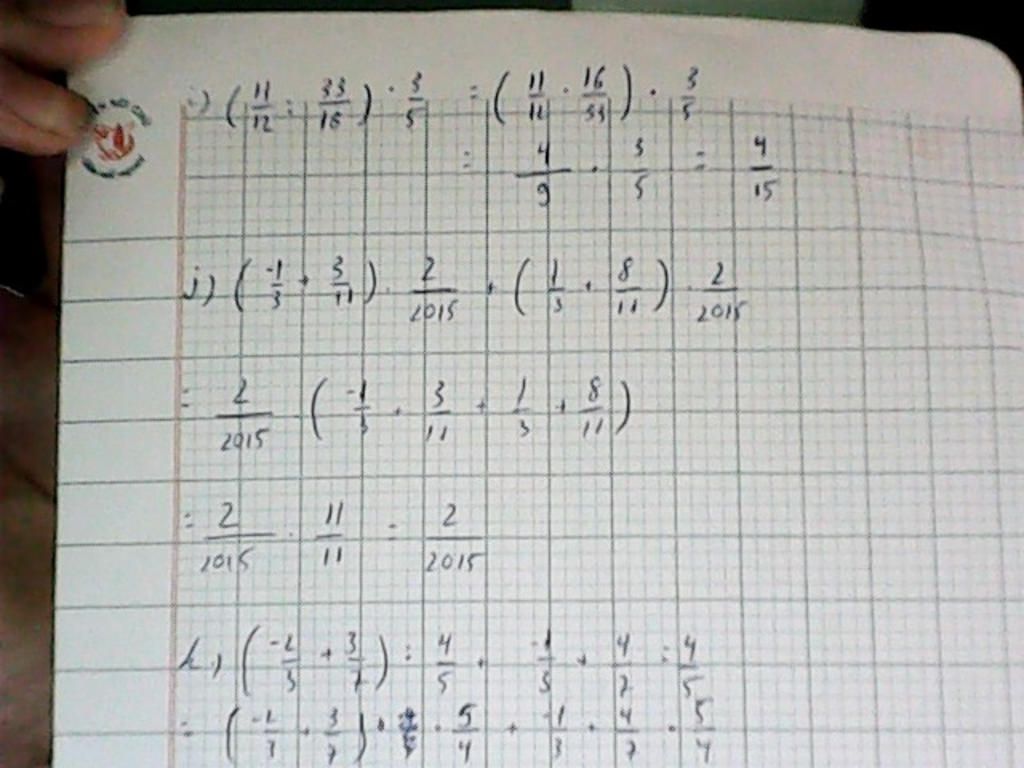 i) (11/12 : 33/16) · 3/5 = (11/12 · 16/33) · 3/5
= 4/9 · 3/5 = 4/15
j) (-1/3 + 3/11) · 2/2015 + (1/3 + 8/11) · 2/2015
= 2/2015 (-1/3 + 3/11 + 1/3 + 8/11)
= 2/2015 · 11/11 = 2/2015
k) (-2/3 + 3/7) : 4/5 + -1/3 + 4/7 : 4/5
= (-2/3 + 3/7) · 5/4 + -1/3 + 4/7 · 5/4